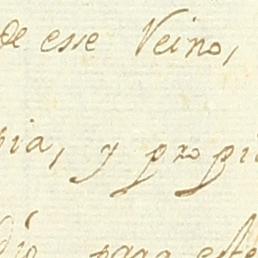 de ese Veino,
pia, y propi
dio para este